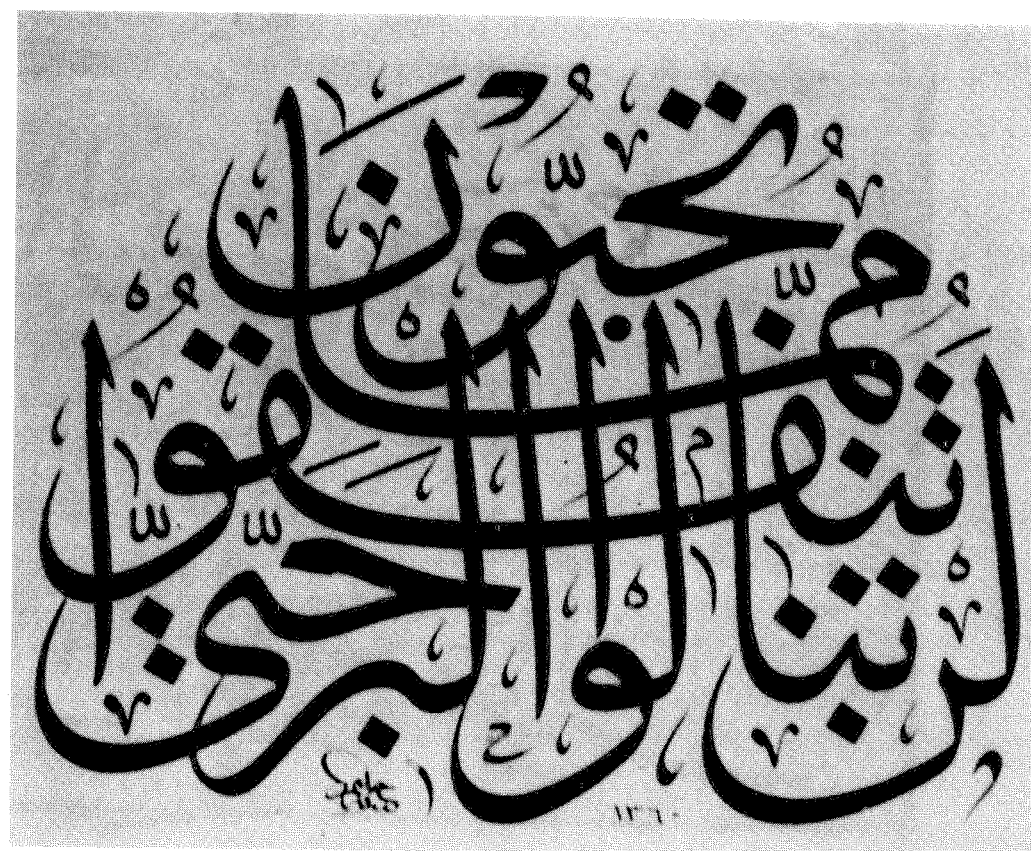 لَن تَنَالُوا الْبِرَّ حَتَّىٰ
تُنفِقُوا
مِمَّا تُحِبُّونَ
١٣٦٠